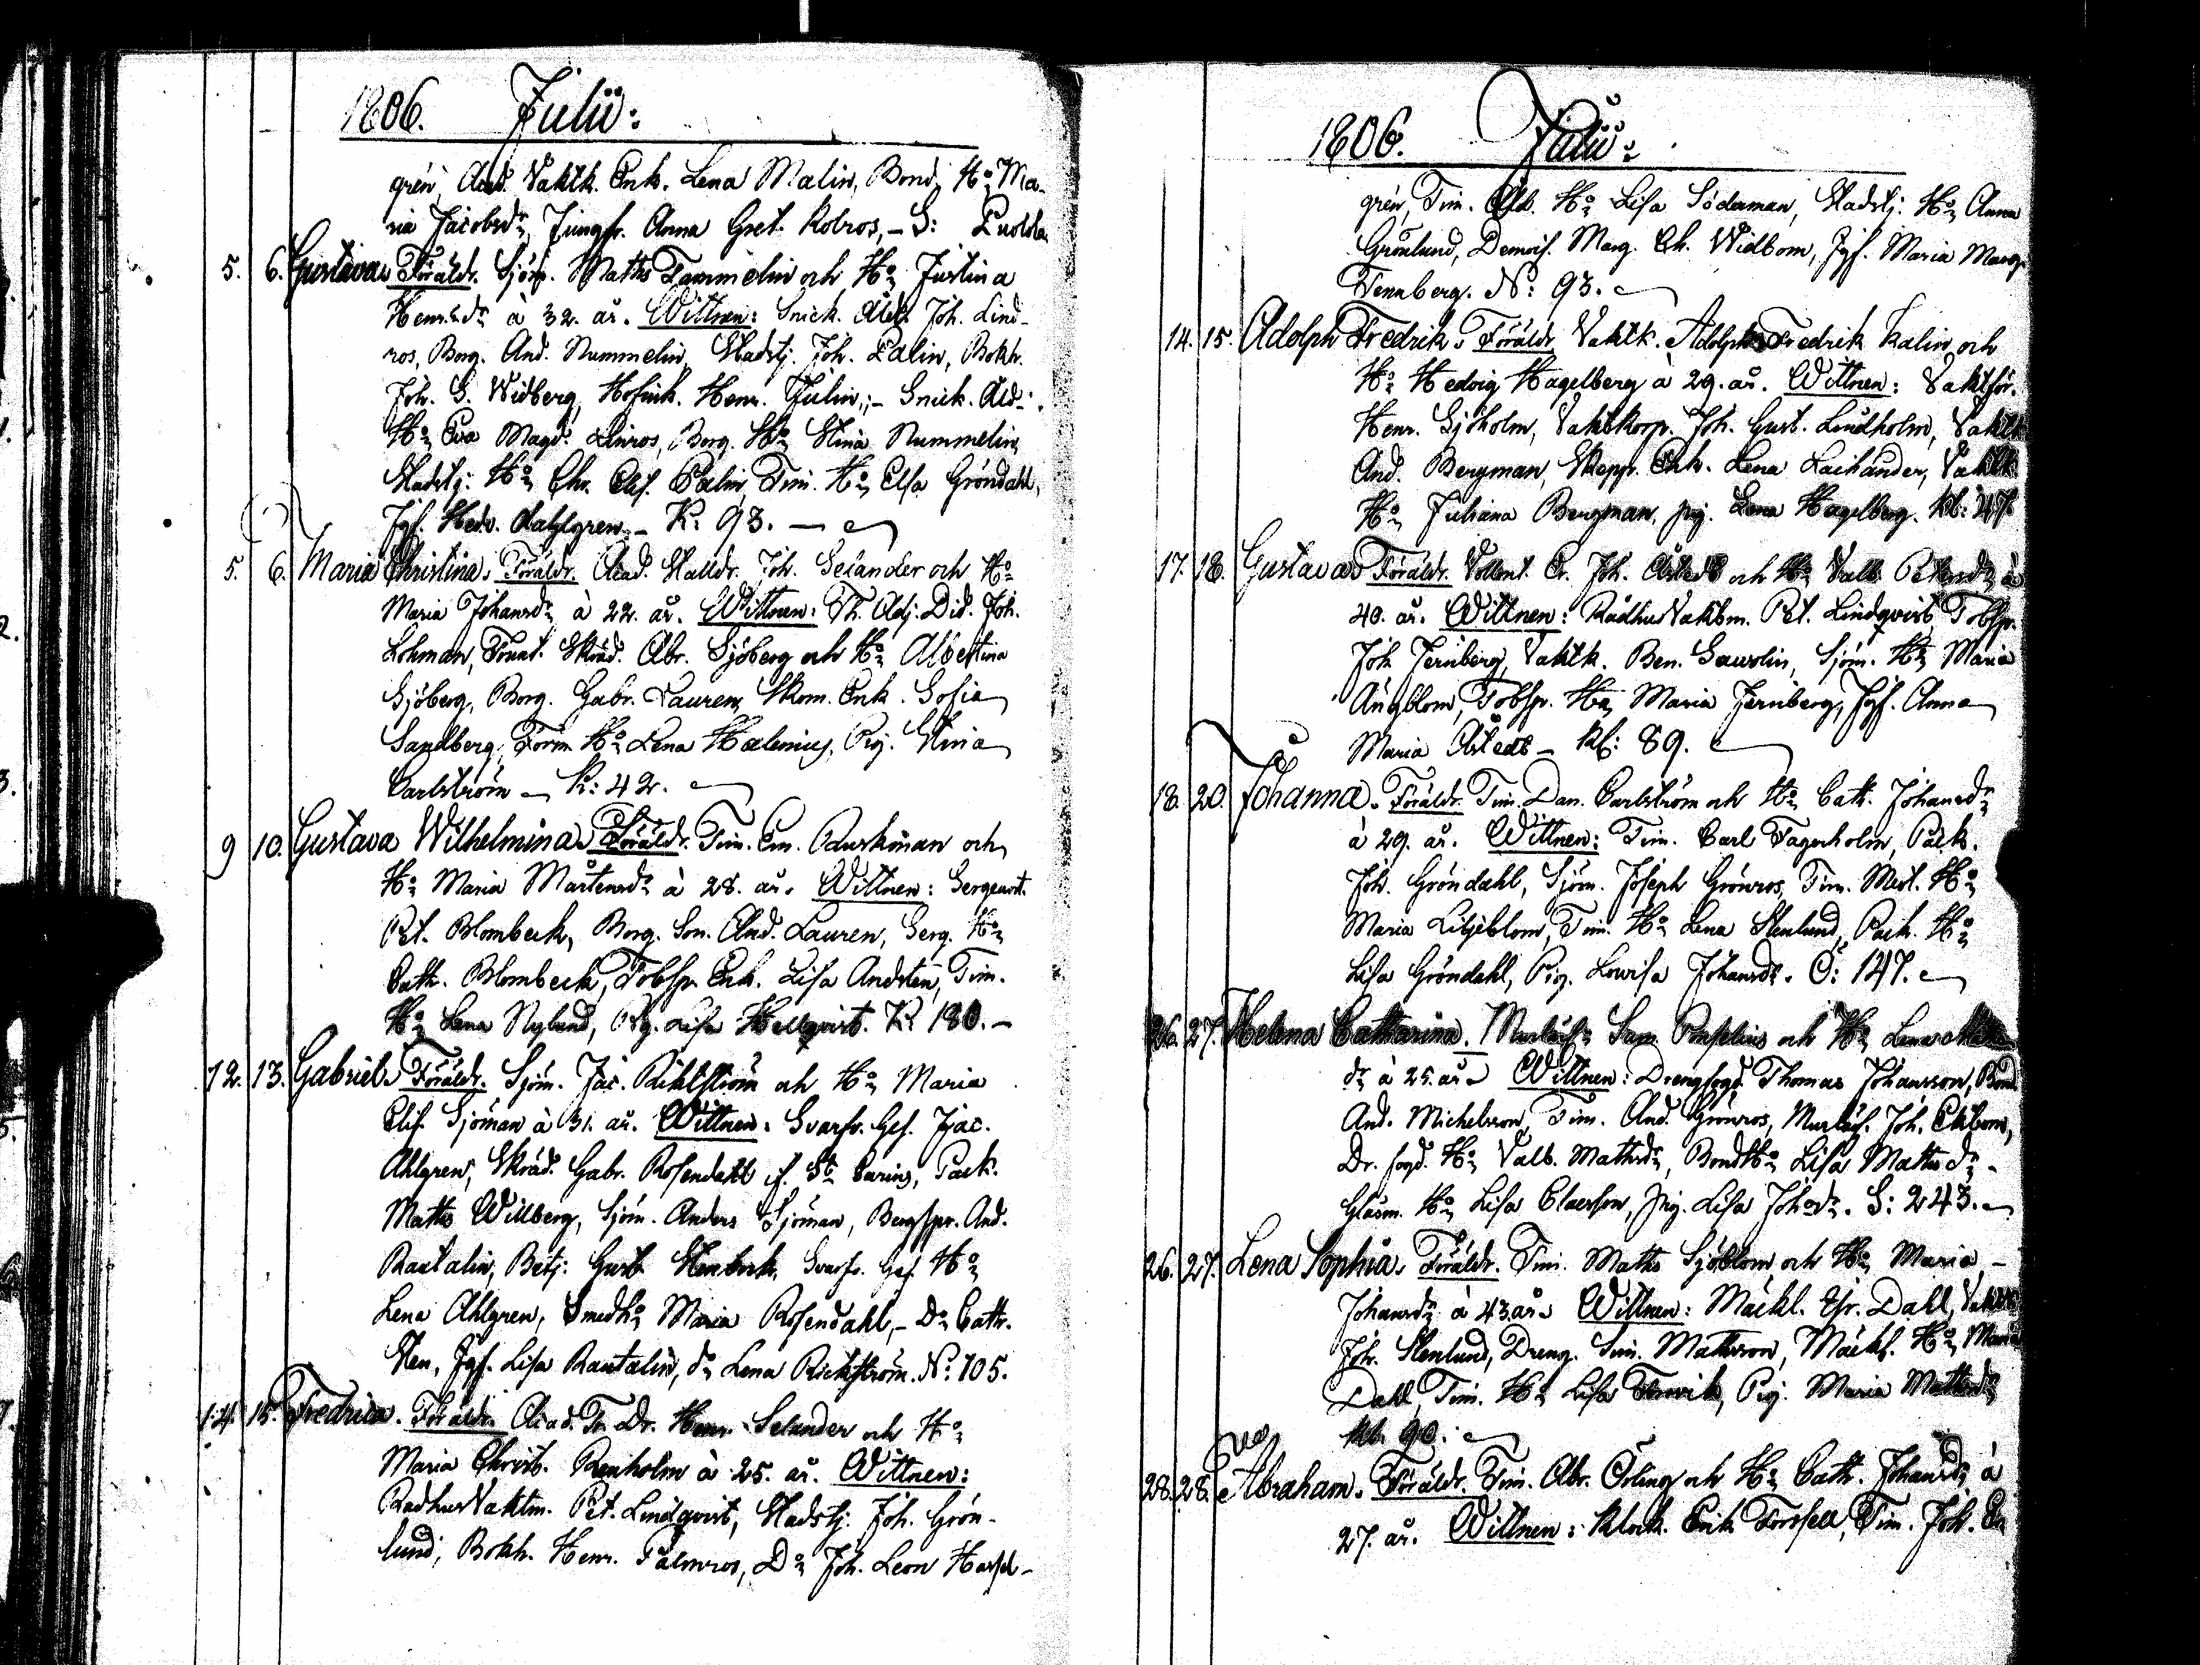 1806. Julii:
grén, Acad. Vaktk. Enk. Lena Malin, Bond. Hu Ma-
ria Jacobsdr, Jungfr. Anna Gret. Kolros, – S:
5. 6. Gustava. Föräldr. Sjöm. Matths Tammelin och Hu Justina
Henr.dr à 32. år. Wittnen: Snick. Åld. Joh. Lind-
ros, Borg. And. Nummelin, Stadstj. Joh. Palin, Bokh.
Joh. G. Widberg, Hofmk. Henr. Julin; – Snick. Åld.
Hu Eva Magd. Linros, Borg. Hu Stina Nummelin,
Stadstj: Hu Chr. Elis. Palin, Tim. Hu Elsa Gröndahl,
Jgf. Hedv. Dahlgren. – K: 93. –
5. 6. Maria Christina. Föräldr. Acad. Stalldr. Joh. Selander och Hu
Maria Johansdr à 22. år. Wittnen: Th. Adj. Did. Joh.
Lohman, Skräd. Abr. Sjöberg och Hu Albertina
Sjöberg, Borg. Gabr. Lauren, Skom. Enk. Sofia
Sandberg, Hu Lena Helenius, Pig. Stina
Carlström – K: 42.
9 10. Gustava Wilhelmina. Föräldr. Tim. Em. och
Hu Maria Mårtensdr à 28. år. Wittnen: Sergeant.
Pet. Blombeck, Borg. Son. And. Lauren, Serg. Hu
Cath. Blombeck, Tobsp. Enk. Lisa Andsten, Tim.
Hu Lena Nylund, Pig. Lisa Hellqvist. K: 180. –
12. 13. Gabriel. Föräldr. Sjöm. Jac. Rikström och Hu Maria
Elis. Sjöman à 31. år. Wittnen: Svarfv. Ges. Isac.
Ahlgren, Skräd. Gabr. Rosendahl if. St: Carins, Pack.
Matths Willberg, Sjöm. Anders Sjöman, And.
Rautalin, Betj: Gust. Stenbock, Svarfv. Ges. Hu
Lena Ahlgren, Smedhu Maria Rosendahl, – Do Cath.
Sten, Jgf. Lisa Rautalin, do Lena Rickström. N: 105.
14. 15. Fredrica. Föräldr. Acad. Henr. Selander och Hu
Maria Christ. Renholm à 25. år. Wittnen:
RådhusVaktm. Pet. Lindqvist, Stadstj. Joh. Grön-
lund, Bokh. Henr. Palmros, Do Joh. Leon Hassel-
1806. Julii:
grén, Tim. Åld. Hu Lisa Söderman, Stadstj: Hu Anna
Grönlund, Demois. Marg. Ch. Widbom, Jgf. Maria Marg.
Tennberg. N: 93.
14. 15. Adolph Fredrik. Föräldr. Vaktk. Adolph Fredrik Kalin och
Hu Hedvig Hagelberg à 29. år. Wittnen: Vaktför.
Henr. Sjöholm, Vaktkorp. Joh. Gust. Lindholm, Vaktk
And. Bergman, Skepp. Enk. Lena Laihander, Vaktk
Hu Juliana Bergman, pig. Lena Hagelberg. Kl: 47.
17. 18. Gustava. Föräldr. Joh. Åstedt och Hu Valb. Petersdr à
40. år. Wittnen: RådhusVaktm. Pet. Lindqvist, Tobsp.
Joh. Jernberg, Vaktk. Ben. Gawelin, Sjöm. Hu Maria
Ängblom, Tobsp. Hu Maria Jernberg, Jgf. Anna
Maria Åstedt – Kl: 89.
18. 20. Johanna. Föräldr. Tim. Dan. Carlström och Hu Cath. Johansdr
à 29. år. Wittnen: Tim. Carl Fagerholm, Pack.
Joh. Gröndahl, Sjöm. Joseph Grönros, Tim. Mest. Hu
Maria Liljeblom, Tim. Hu Lena Stenlund, Pack. Hu
Lisa Gröndahl, Pig. Lovisa Johansdr. O: 147.
26. 27. Helena Catharina. Murläsh: Sam. Ponselius och Hu Lena
dr à 25. år. Wittnen: Drengfogd. Thomas Johansson, Bond
And. Michelsson, Tim. And. Grönros, Murläsh. Joh. Ekbom,
Dr. fogd. Hu Valb. Mathsdr, BondHu Lisa Mattsdr. –
Glasm. Hu Lisa Claesson, Pig. Lisa Joh.dr. S: 243.
26. 27. Lena Sophia. Föräldr. Tim. Maths Sjöblom och Hu Maria –
Johansdr à 43 år. Wittnen: Mäckl. Gr. Dahl, Vaktk
Joh. Stenlund, Dreng. Sim. Mattsson, Mäckl. Hu Maria
Dahl, Tim. Hu Lisa Pig. Maria Mattsdr
Kl. 90.
28. 28. Abraham. Föräldr. Tim. Abr. Örling och Hu Cath. Johansdr à
27. år. Wittnen: Klock. Erik Forssell, Tim. Joh.